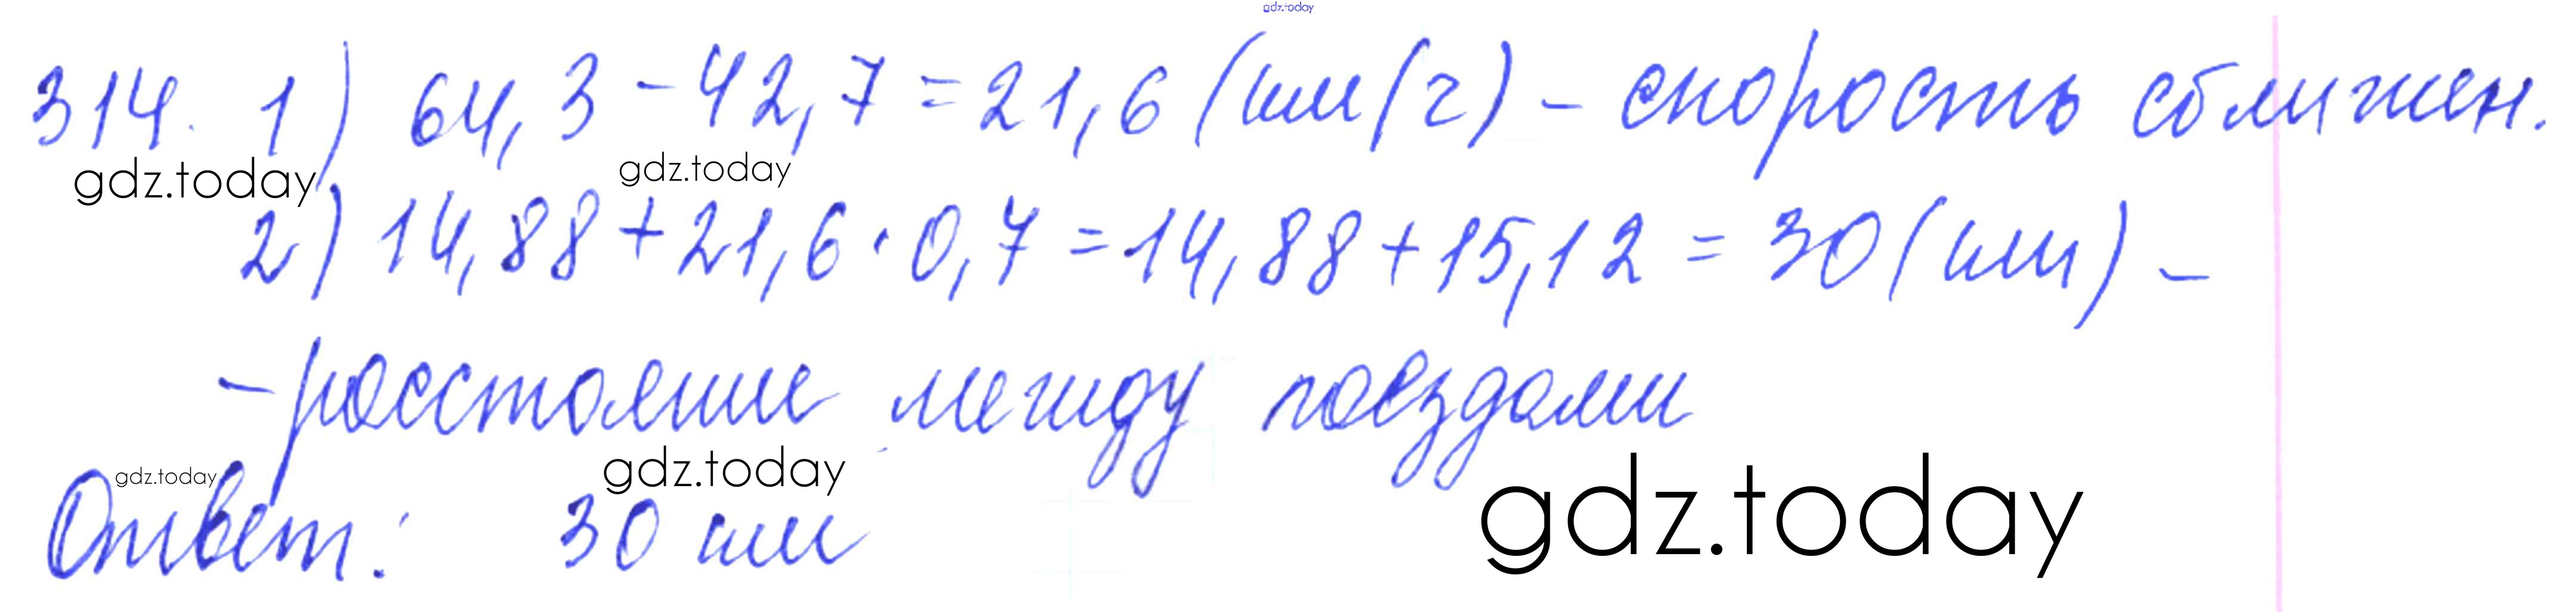 gdz.today
314. 1) 64,3 - 42,7 = 21,6 (км/ч) - скорость сближен.
gdz.today gdz.today
2) 14,88 + 21,6 · 0,7 = 14,88 + 15,12 = 30 (км) -
- расстояние между поездами
gdz.today gdz.today gdz.today
Ответ: 30 км